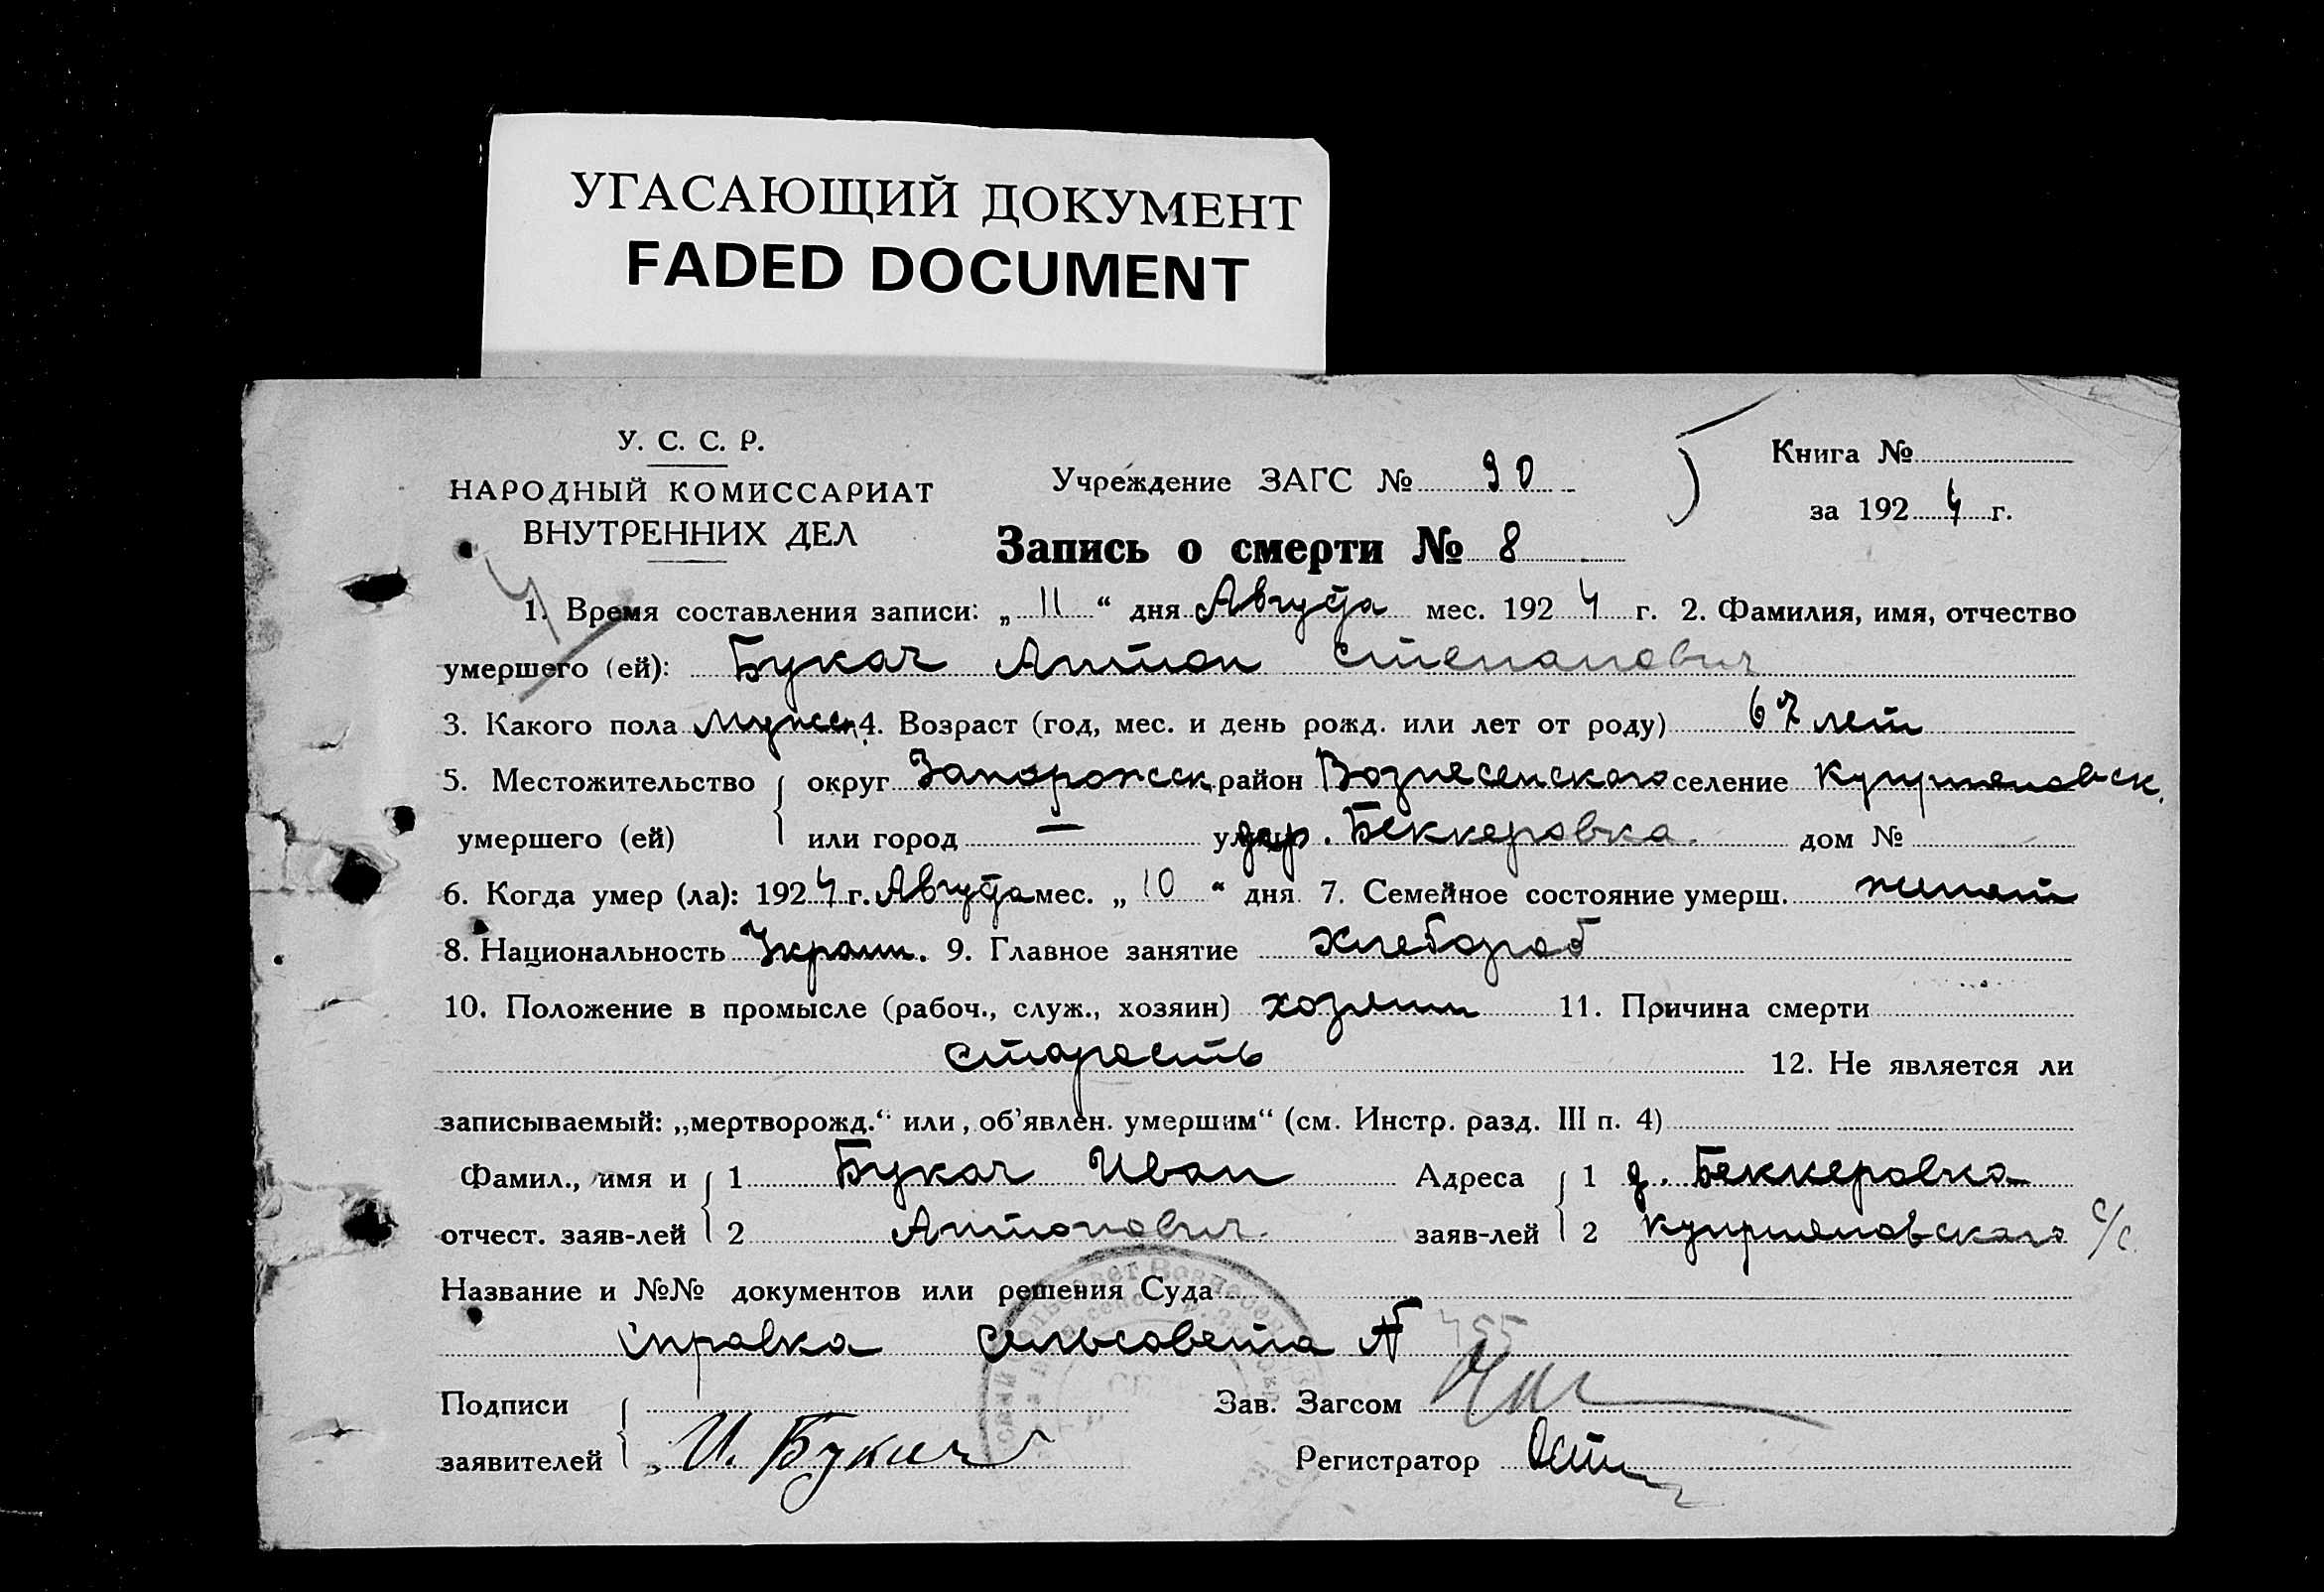 УГАСАЮЩИЙ ДОКУМЕНТ
FADED DOCUMENT
У. С. С. Р.
НАРОДНЫЙ КОМИССАРИАТ
ВНУТРЕННИХ ДЕЛ
Учреждение ЗАГС № 90
Книга №
за 1924 г.
Запись о смерти № 8
1. Время составления записи: „ 11 “ дня Августа мес. 1924 г. 2. Фамилия, имя, отчество
умершего (ей): Букач Антон Степанович
3. Какого пола мужск. 4. Возраст (год, мес. и день рожд. или лет от роду) 67 лет
5. Местожительство округ Запорожск. район Вознесенского селение Куприяновск.
умершего (ей) или город — дер. Беккеровка. дом №
6. Когда умер (ла): 1924 г. Августа мес. „ 10 “ дня. 7. Семейное состояние умерш. женат
8. Национальность Украин. 9. Главное занятие хлебороб
10. Положение в промысле (рабоч., служ., хозяин) хозяин 11. Причина смерти
старость 12. Не является ли
записываемый: „мертворожд.“ или „об’явлен. умершим“ (см. Инстр. разд. III п. 4)
Фамил., имя и 1 Букач Иван Адреса 1 д. Беккеровка
отчест. заяв-лей 2 Антонович. заяв-лей 2 Куприяновского с/с.
Название и №№ документов или решения Суда
Справка сельсовета № 455
Подписи Зав. Загсом
заявителей И. Букач Регистратор